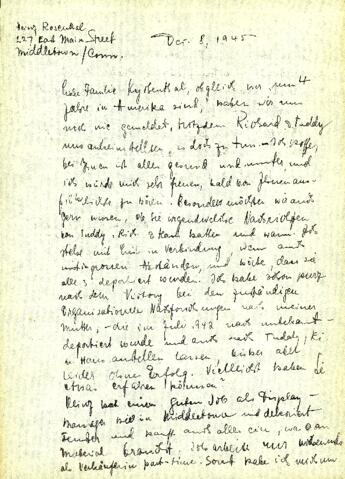 Heinz Rosenthal
227 East Main Street
Middletown / Conn.
Dec. 8, 1945
Liebe Familie, obgleich wir nun 4
Jahre in Amerika sind, haben wir uns
noch nie gemeldet, trotzdem Richard & Tuddy
uns, es doch zu tun. Ich hoffe,
bei Ihnen ist alles gesund und munter und
ich würde mich sehr freuen, bald von Ihnen aus-
führlichst zu hören. Besonders möchten wir auch
gern wissen, ob Sie irgendwelche Nachrichten
von Tuddy, Rich & Hans hatten und wann. Ich
stehe mit in Verbindung, wenn auch
mit grossen Abständen, und hörte, dass sie
alle 3 deportiert wurden. Ich habe schon kurz
nach dem Victory bei den zuständigen
Organisationen Nachforschungen nach meiner
Mutter, - die im Juli 1942 nach unbekannt
deportiert wurde und auch nach Tuddy, Ri
& Hans anstellen lassen, bisher aber
leider ohne Erfolg. Vielleicht haben Sie
etwas erfahren können?
Heinz hat einen guten Job als Display-
Manager hier in Middletown und dekoriert
Fenster und kauft auch alles ein, was er an
Material braucht. Ich arbeite nur
als Verkäuferin part-time. Sonst habe ich mich um